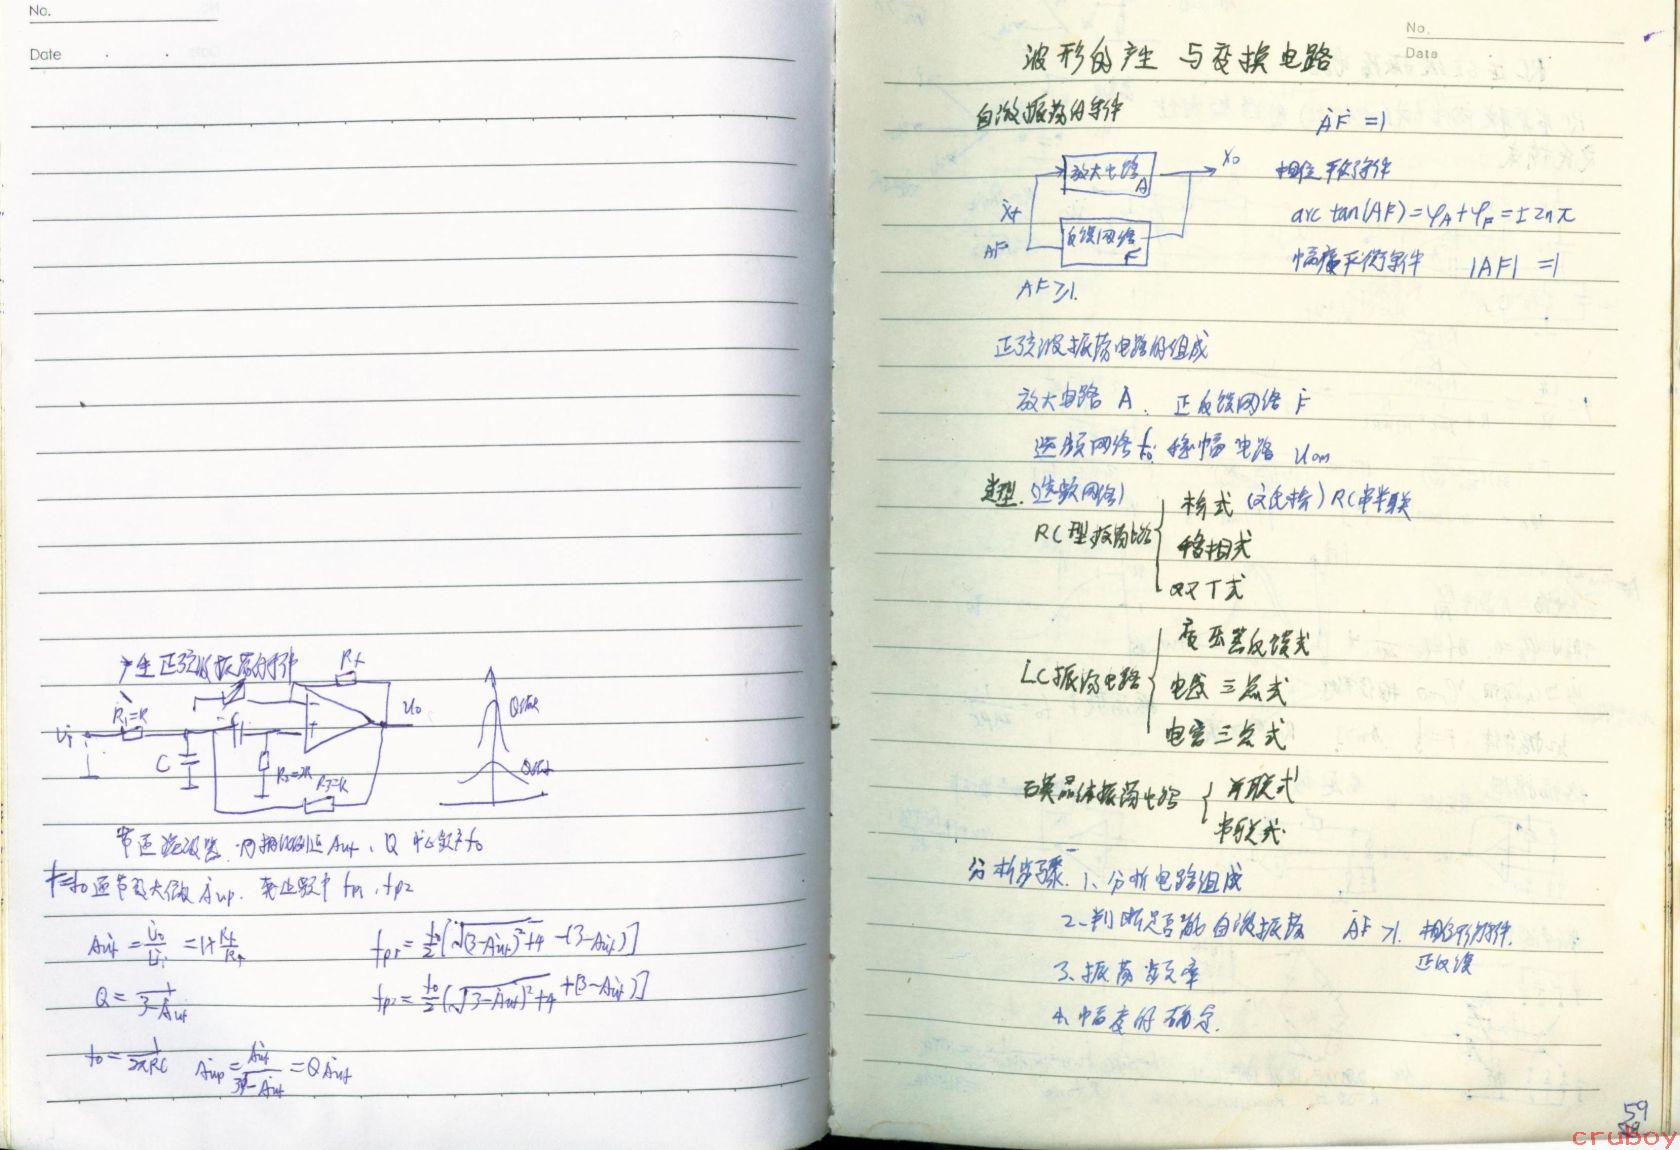 No.
Date
产生正弦波振荡的条件
Rf
R₁=R
Uo
Ui
C
R₂=2R
R₃=R
Q
Q
Auf、Q 中心频率fo
f=fo 通带放大倍数 Aup. 截止频率 fp1, fp2
Auf = Uo/Ui = 1+Rf/R1
fp1 = fo/2[√(3-Auf)²+4 -(3-Auf)]
Q = 1/(3-Auf)
fp2 = fo/2(√(3-Auf)²+4 +(3-Auf)]
fo = 1/2πRC Aup = Auf/(3-Auf) = QAuf
No.
Date
波形的产生与变换电路
自激振荡的条件
ȦḞ=1
放大电路 A
Xo
相位平衡条件
Xf
arc tan(AF)=φA+φF=±2nπ
反馈网络 F
AF
幅度平衡条件 |AF|=1
AF≥1.
正弦波振荡电路的组成
放大电路 Ȧ. 正反馈网络 Ḟ
选频网络 fo. 稳幅电路 Uom
类型. (选频网络)
RC型振荡电路
桥式 (文氏桥) RC串并联
移相式
双T式
LC振荡电路
变压器反馈式
电感三点式
电容三点式
石英晶体振荡电路
并联式
串联式
分析步骤. 1、分析电路组成
2、判断是否能自激振荡 ȦḞ>1. 相位平衡条件.
正反馈
3、振荡频率
4、幅度的确定.
59
cruboy